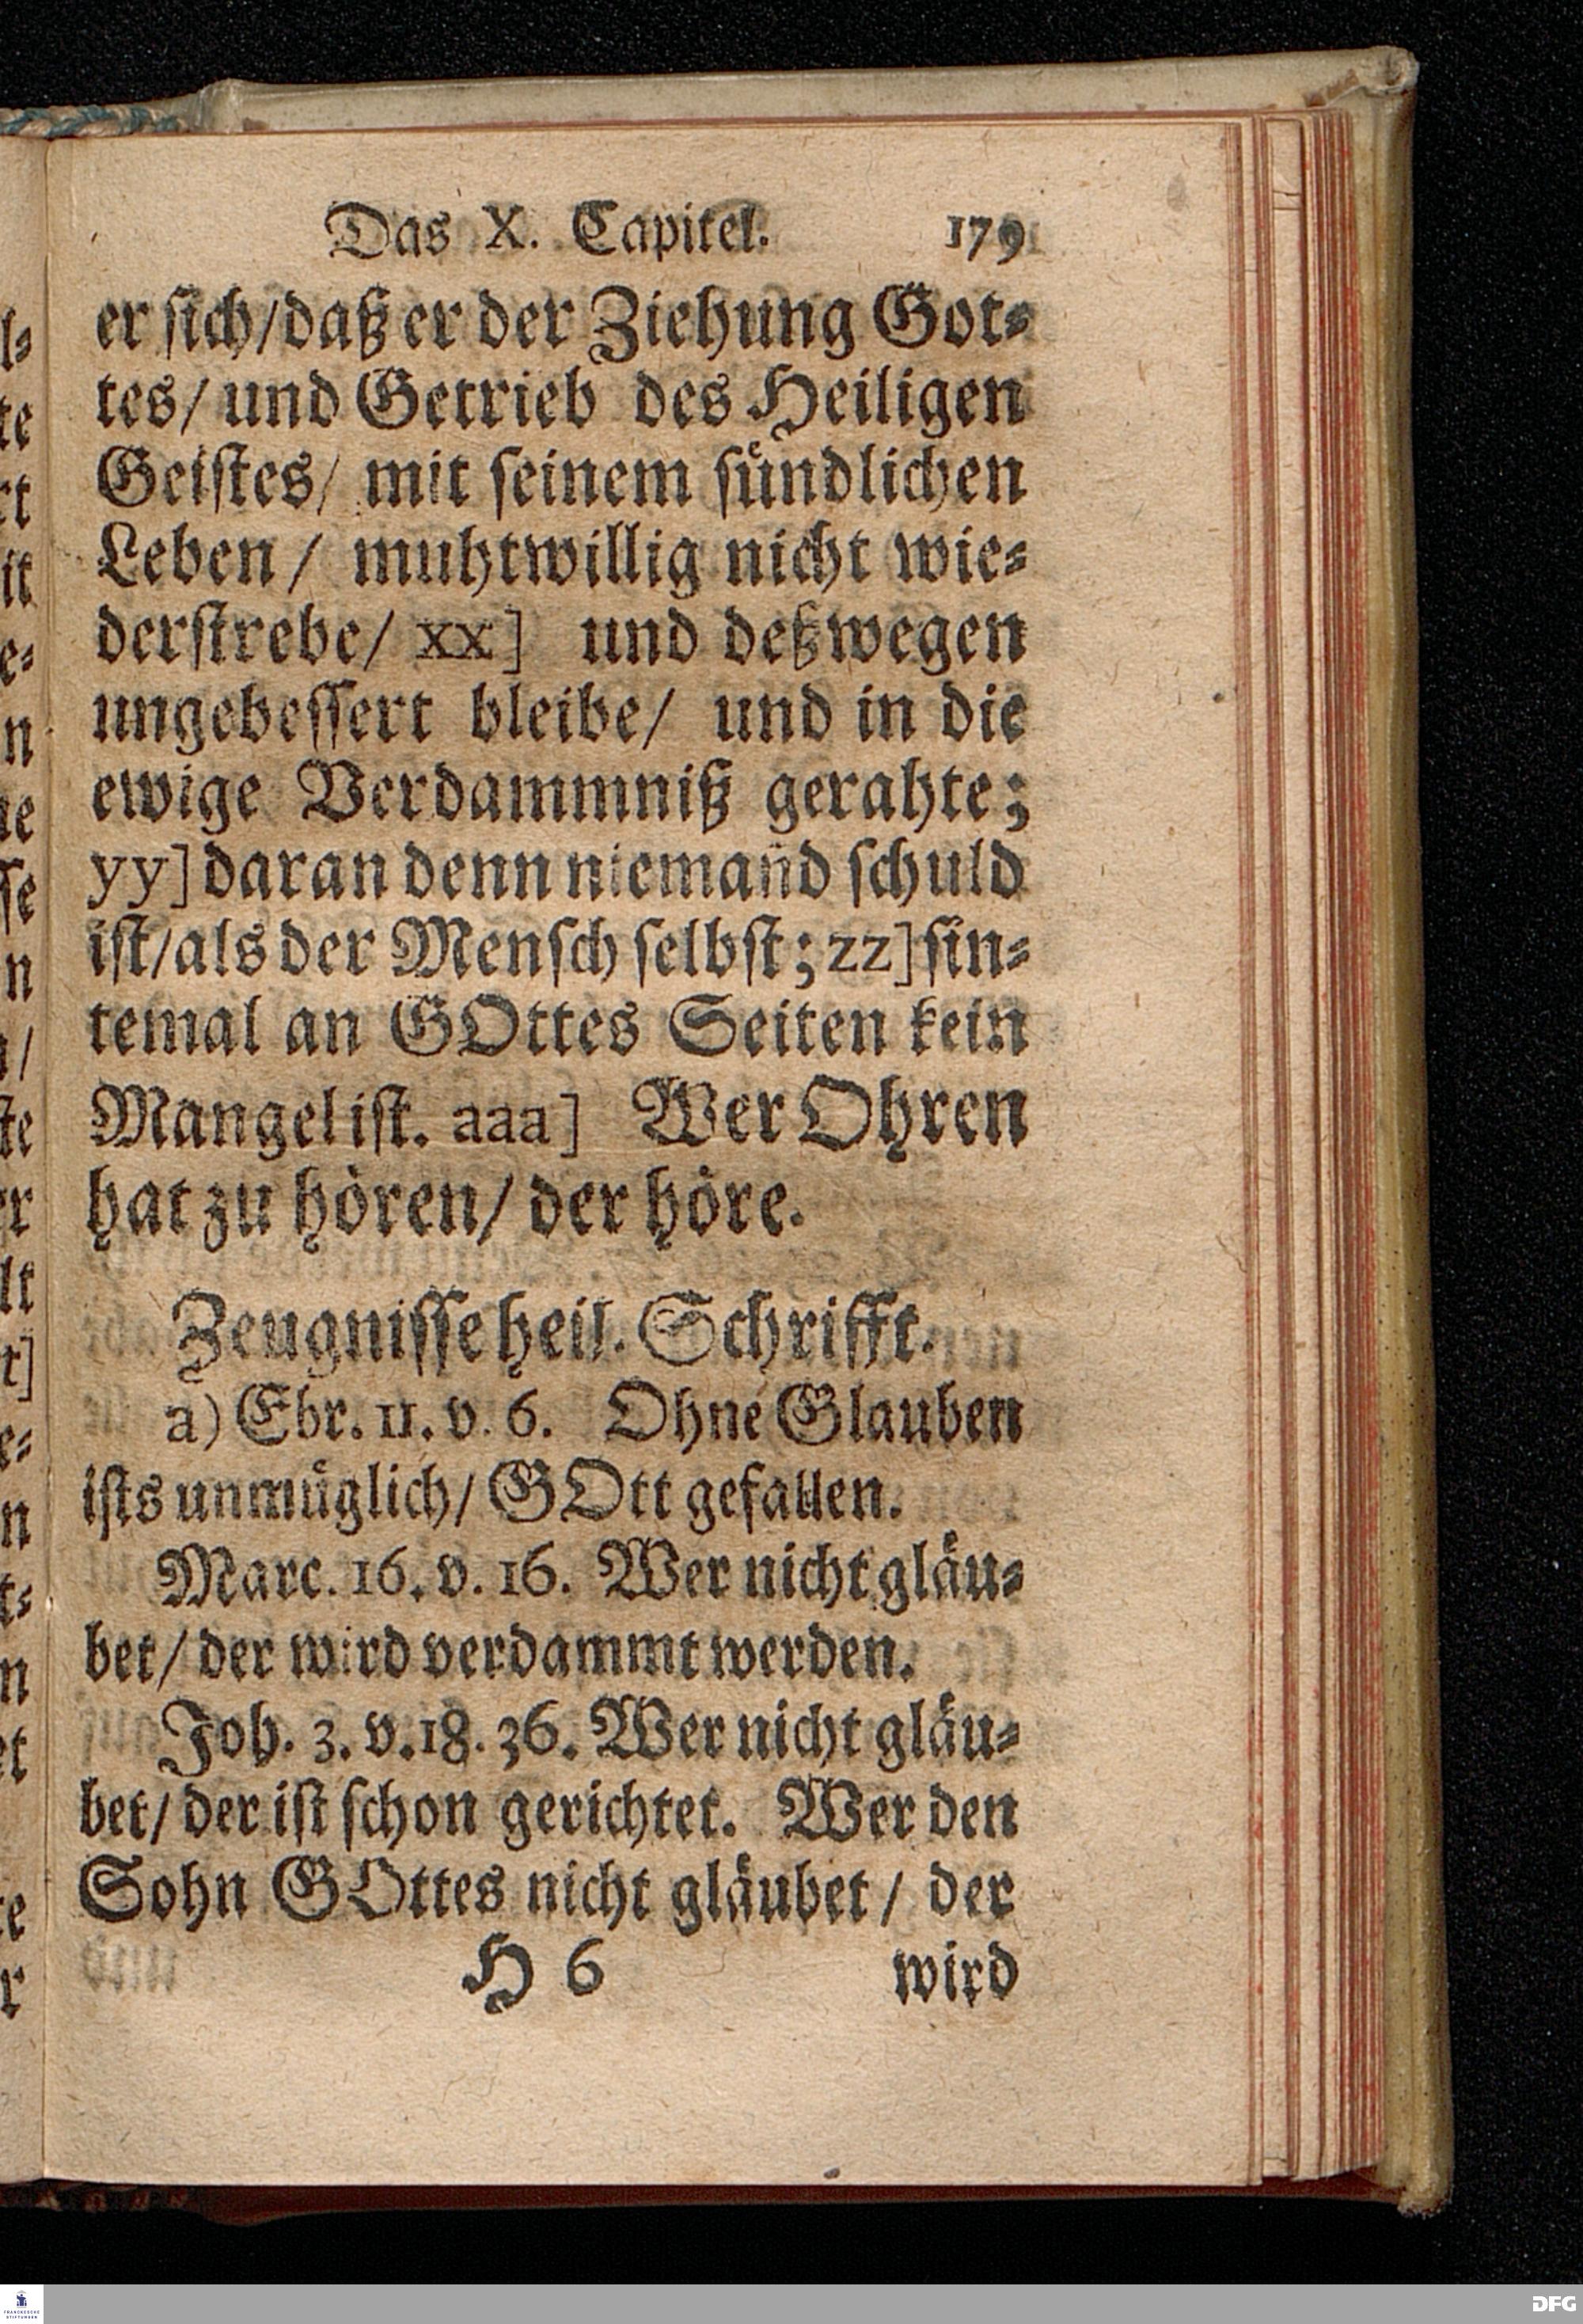 Das X. Capitel. 179
er sich/daß er der Ziehung Got-
tes/ und Getrieb des Heiligen
Geistes/ mit seinem sündlichen
Leben/ muhtwillig nicht wie-
derstrebe/ xx] und deßwegen
ungebessert bleibe/ und in die
ewige Verdammniß gerahte;
yy] daran denn niemand schuld
ist/als der Mensch selbst; zz] sin-
temal an GOttes Seiten kein
Mangel ist. aaa] Wer Ohren
hat zu hören/ der höre.
Zeugnisse heil. Schrifft.
a) Ebr. 11. v. 6. Ohne Glauben
ists unmüglich/ GOtt gefallen.
Marc. 16. v. 16. Wer nicht gläu-
bet/ der wird verdammt werden.
Joh. 3. v. 18. 36. Wer nicht gläu-
bet/ der ist schon gerichtet. Wer den
Sohn GOttes nicht gläubet/ der
H 6 wird
FRANCKESCHE
STIFTUNGEN
DFG